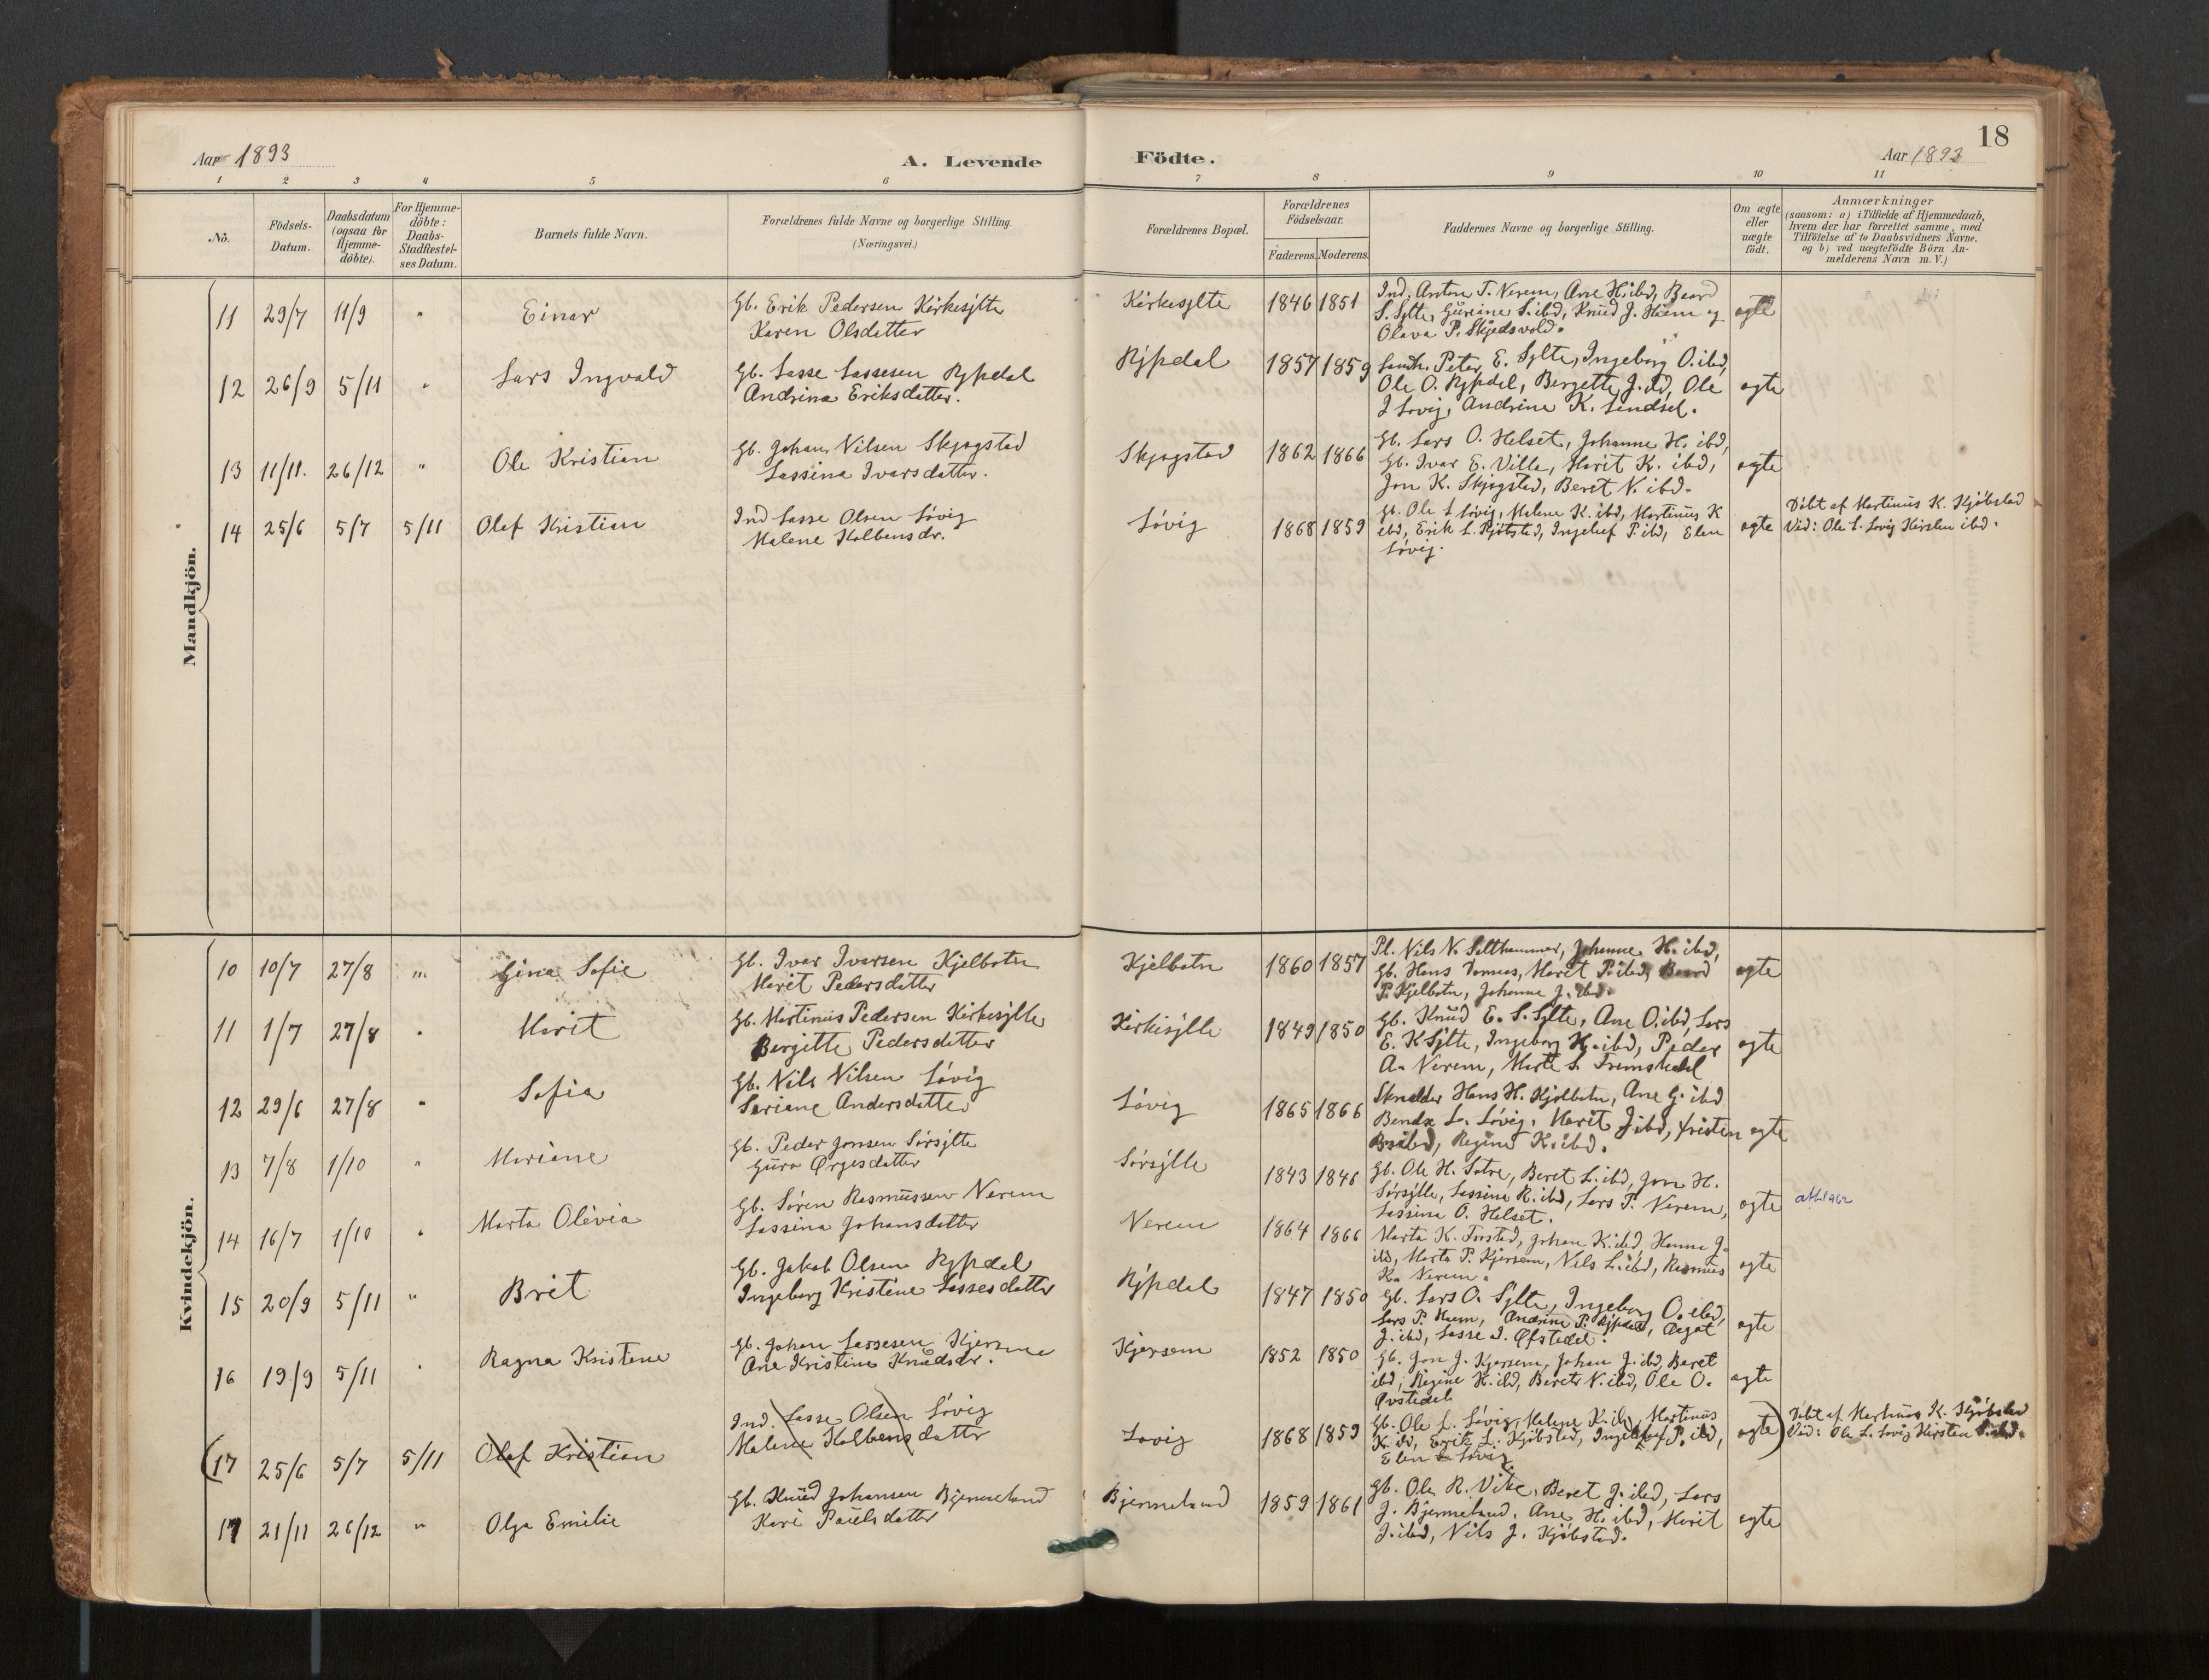 Aar 1893
A. Levende
Födte.
Aar 1893
18
1 2 3 4 5 6 7 8 9 10 11
No.
Födsels-Datum.
Daabsdatum (ogsaa for Hjemme-döbte).
For Hjemme-döbte: Daabs-Stadfæstel-ses Datum.
Barnets fulde Navn.
Forældrenes fulde Navne og borgerlige Stilling.
(Næringsvei.)
Forældrenes Bopæl.
Forældrenes Födselsaar.
Faderens. Moderens.
Faddernes Navne og borgerlige Stilling.
Om ægte eller uægte födt.
Anmærkninger
(saasom: a) i Tilfælde af Hjemmedaab,
hvem der har forrettet samme, med
Tilföielse af to Daabsvidners Navne.
og b) ved uægtefödte Börn An-
melderens Navn m.V.)
Mandkjön.
11 29/7 11/9 " Einar
Gb. Erik Pedersen Kirkesylte
Karen Olsdatter
Kirkesylte 1846 1851
Ind. Anton T. Nerem, Ane H. ibd, Baard
S. Sylte, Guriane S. ibd, Knud J. Hiem og
Olava P. Skjedsvold.
ægte
12 26/9 5/11 " Lars Ingvald
Gb. Lasse Lassesen Rypdal
Andrina Eriksdatter.
Rypdal 1857 1859
Peter E. Sylte, Ingeborg O. ibd,
Ole O. Rypdal, Bergette J. ibd, Ole
J Løvig, Andrine K. Lendsel.
ægte
13 11/11. 26/12 " Ole Kristian
Gb. Johan Nilsen Skjøgstad
Lassina Ivarsdatter.
Skjøgstad 1862 1866
Gb. Lars O. Helset, Johanne H. ibd,
Gb. Ivar E. Villa, Marit K. ibd,
Jon K. Skjøgstad, Beret N. ibd.
ægte
14 25/6 5/7 5/11 Olaf Kristian
Ind Lasse Olsen Løvig
Malene Kolbensdr.
Løvig 1868 1859
Gb. Ole L Løvig, Malene K. ibd, Martinus K
ibd, Erik L. Kjøbstad, Ingelief P. ibd, Elen
Løvig.
ægte
Døbt af Martinus K. Kjøbstad
Vid: Ole L. Løvig Kirsten ibd.
Kvindekjön.
10 10/7 27/8 " Gina Sofie
Gb. Ivar Ivarsen Kjelbotn
Marit Pedersdatter
Kjelbotn 1860 1857
Pl. Nils N. Salthammer, Johanne H. ibd,
Gb. Hans Vomnes, Marit P. ibd, Baard
P. Kjelbotn, Johanne J. ibd.
ægte
11 1/7 27/8 " Marit
Gb. Martinus Pedersen Kirkesylte
Bergitte Pedersdatter
Kirkesylte 1849 1850
Gb. Knud E. S. Sylte, Ane O. ibd, Lars
E. K Sylte, Ingeborg H. ibd, Peder
A. Nerem, Marte L. Fremstedal
ægte
12 29/6 27/8 " Sofia
Gb. Nils Nilsen Løvig
Seriane Andersdatter
Løvig 1865 1866
Skrædder Hans H. Kjelbotn, Ane G. ibd
Bendx L. Løvig, Marit J. ibd, Kristen
ibd, Regine K. ibd.
ægte
13 7/8 1/10 " Mariane
Gb. Peder Jonsen Sørsylte
Guro Ørgesdatter
Sørsylte 1843 1846
Gb. Ole H. Sætre, Beret L. ibd, Jon H.
Sørsylte, Lassina R. ibd, Lars P. Nerem,
Lassina O. Helset.
ægte
14 16/7 1/10 " Marta Olivia
Gb. Søren Rasmussen Nerem
Lassina Johansdatter
Nerem 1864 1866
Marta K. Frostad, Johan K. ibd, Hanna J.
ibd, Marta P. Kjersem, Nils L. ibd, Rasmus
K. Nerem.
ægte
15 20/9 5/11 " Brit
Gb. Jakob Olsen Rypdal
Ingeborg Kristine Lassesdatter
Rypdal 1847 1850
Gb. Lars O. Sylte, Ingeborg O. ibd,
Lars P. Hiem, Andrine P. Rypdal, Aagot
J. ibd, Lasse J. Øfstedal.
ægte
16 19/9 5/11 " Ragna Kristine
Gb. Johan Lassesen Kjersem
Ane Kristine Knudsdr.
Kjersem 1852 1850
Gb. Jon J. Kjersem, Johan J. ibd, Beret
ibd, Regine H. ibd, Beret N. ibd, Ole O.
Øvstedal
ægte
(17 25/6 5/7 5/11 Olaf Kristian
Ind. Lasse Olsen Løvig
Malene Kolbensdatter
Løvig 1868 1859
Gb. Ole L. Løvig, Malene K. ibd, Martinus
K. ibd, Erik L. Kjøbstad, Ingelief P. ibd,
Elen Løvig
ægte)
Døbt af Martinus K. Kjøbstad
Vid: Ole L. Løvig Kirsten ibd.
17 21/11 26/12 " Olga Emilie
Gb. Knud Johansen Bjermeland
Kari Paulsdatter
Bjermeland 1859 1861
Gb. Ole R. Vike, Beret J. ibd, Lars
J. Bjermeland, Ane H. ibd, Marit
J. ibd, Nils J. Kjøbstad.
ægte